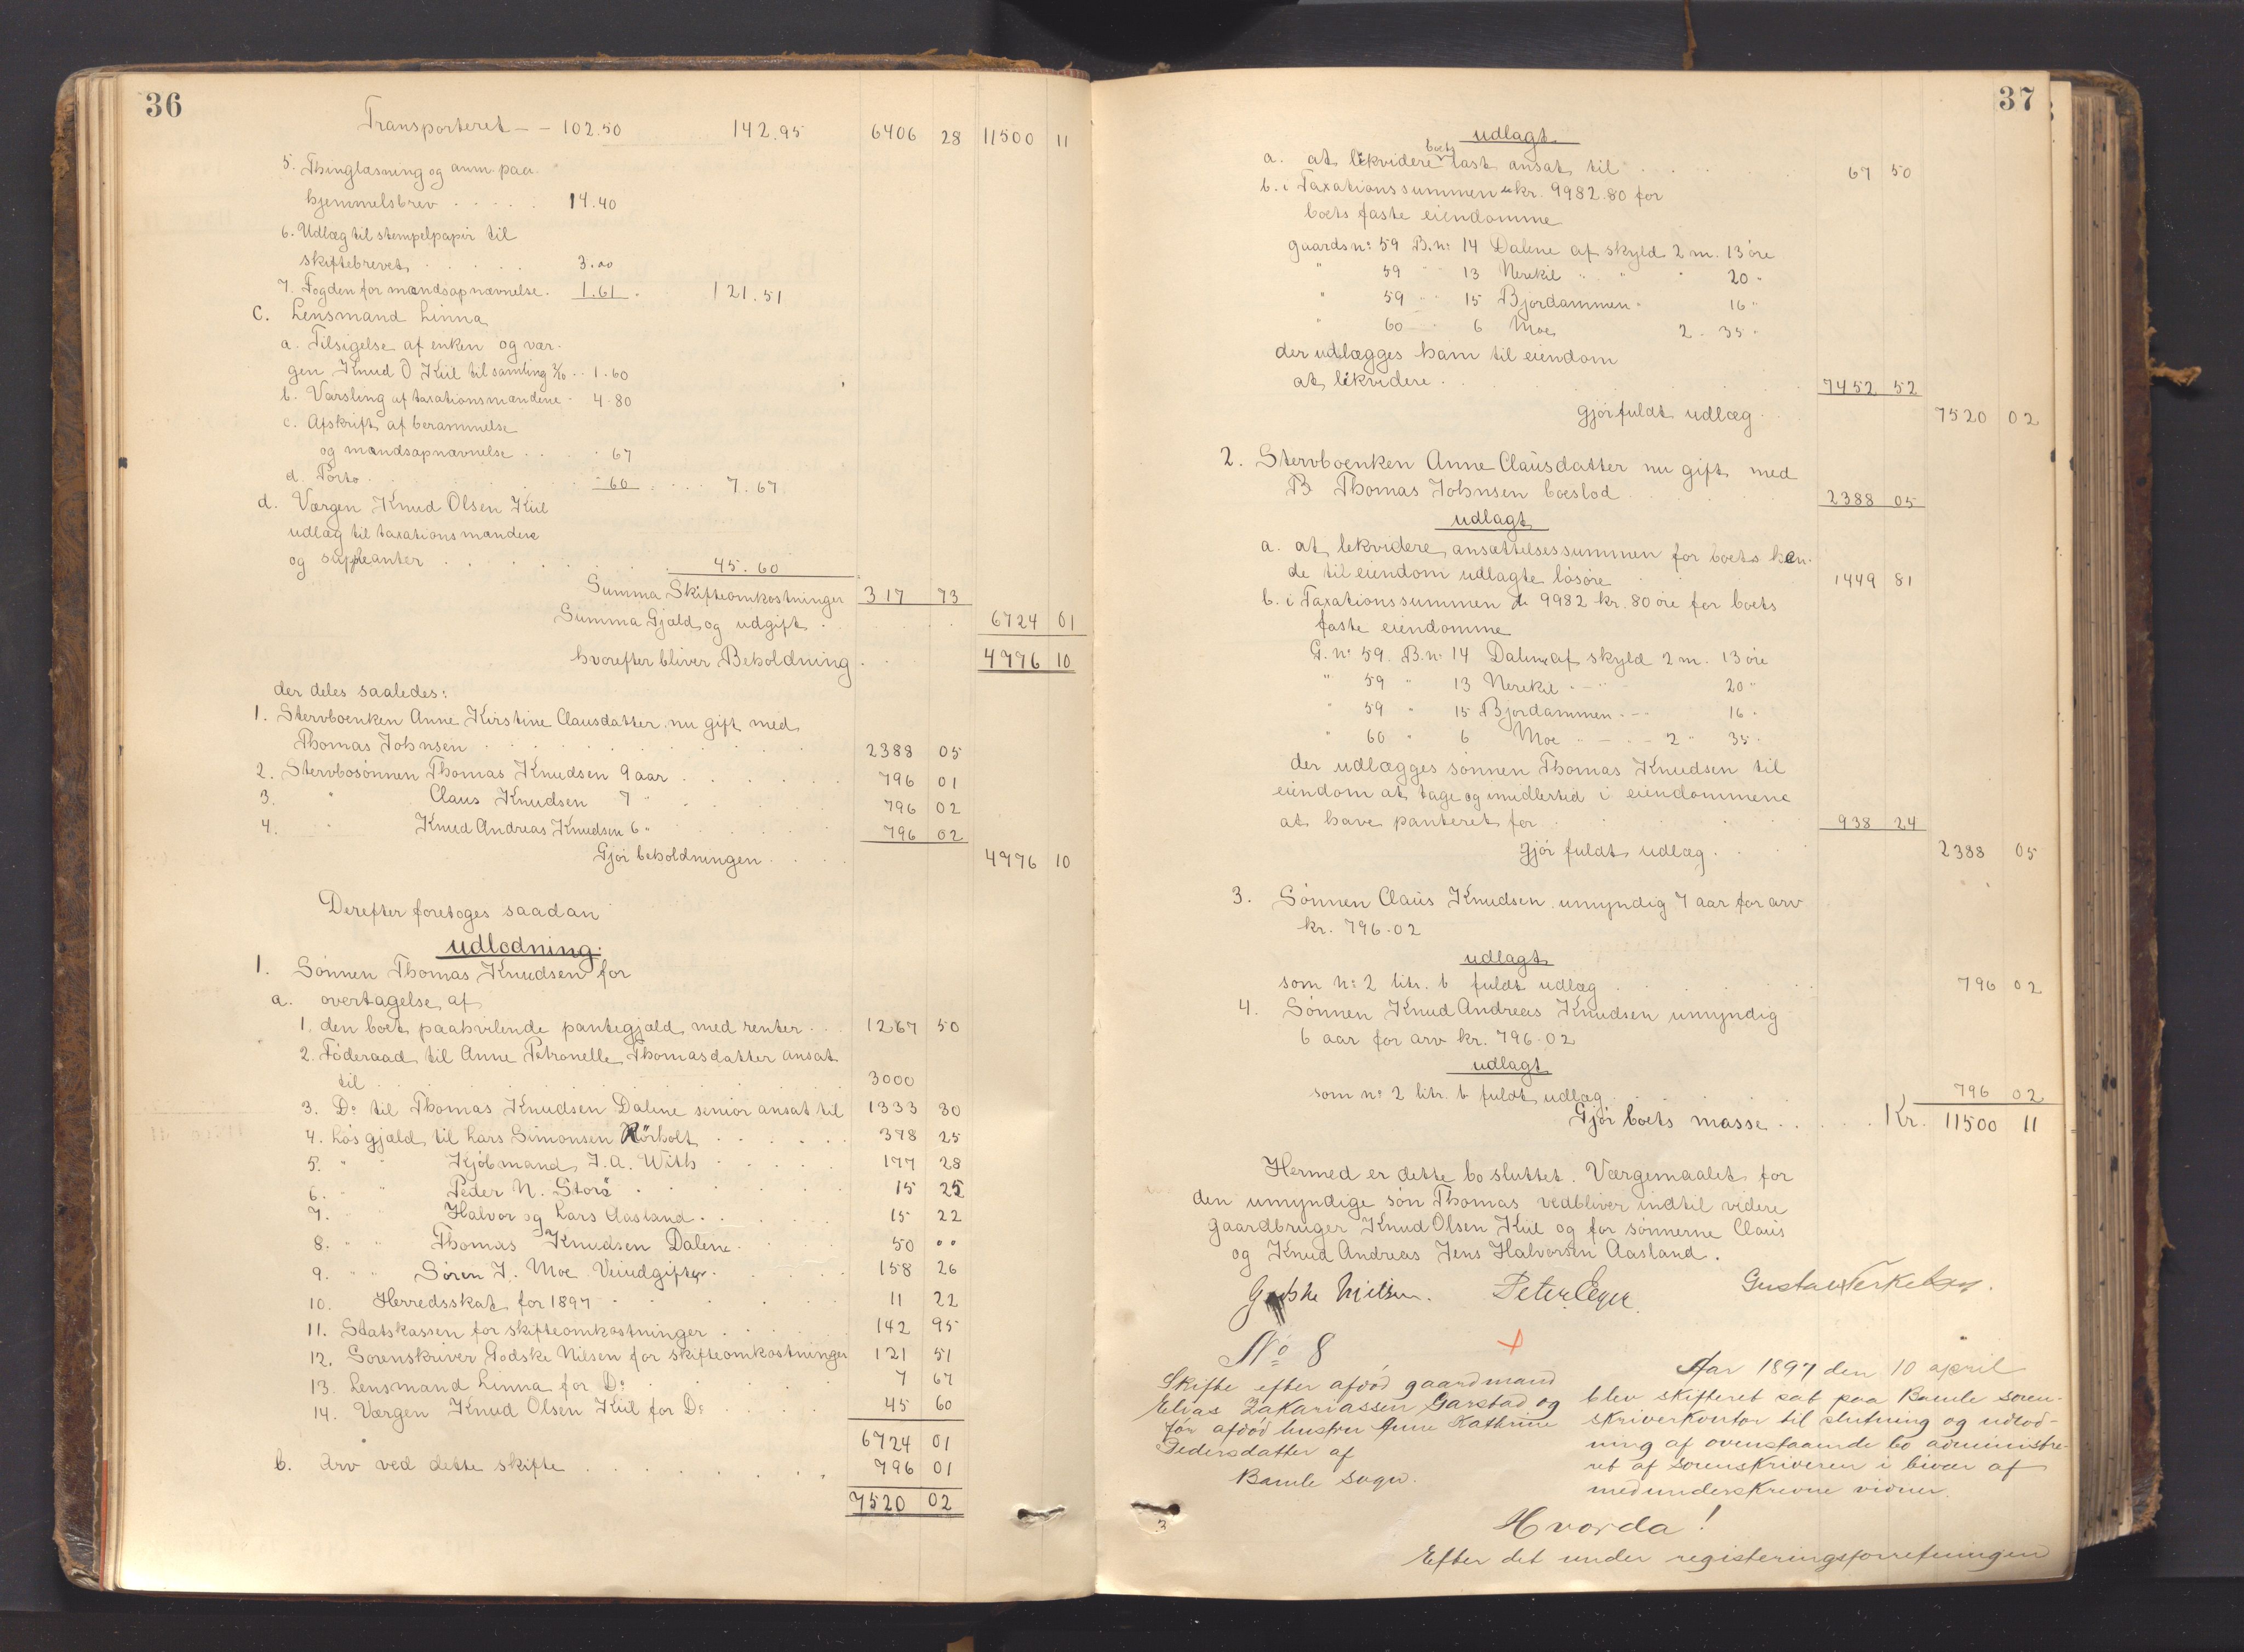 36
Transporteret - - 102.50 142.95 6406 28 11500 11
5. Thinglæsning og anm. paa
hjemmelsbrev . . . . : 14.40
6. Udlæg til stempelpapir til
skiftebrevet . . . . . 3.00
7. Fogden for mændsopnævnelse. 1.61 . 121.51
C. Lensmand Linna
a. Tilsigelse af enken og vær-
gen Knud O Kiil til samling . . 1.60
b. Varsling af taxationsmændene . 4.80
c. Afskrift af berammelse
og mændsopnævnelse . . . . 67
d. Porto . . . . . . . 60 . . . . 7.67
d. Værgen Knud Olsen Kiil
udlæg til taxationsmændene
og suppleanter . . . . . . . . 45.60
Summa Skifteomkostninger 317 73
Summa Gjæld og udgift . . . . 6724 01
hvorefter bliver Beholdning . . . . 4776 10
der deles saaledes:
1. Stervboenken Anne Kirstine Clausdatter nu gift med
Thomas Johnsen . . . . . . . . . . 2388 05
2. Stervbosönnen Thomas Knudsen 9 aar . . . . . . 796 01
3. " Claus Knudsen 7 " . . . . 796 02
4. " Knud Andreas Knudsen 6 " . . . . 796 02
Gjör beholdningen . . . . 4776 10
Derefter foretoges saadan
udlodning:
1. Sönnen Thomas Knudsen for
a. overtagelse af
1. den boet paahvilende pantegjæld med renter . . . 1267 50
2. Föderaad til Anne Petronelle Thomasdatter ansat
til . . . . . . . . . . . . . 3000
3. Do til Thomas Knudsen Dalene senior ansat til 1333 30
4. Lös gjæld til Lars Simonsen Rörholt . . . . . . 378 25
5. " " Kjöbmand J. A. With . . . . . 177 28
6. " " Peder N. Storö . . . . . . . 15 25
7. " " Halvor og Lars Aasland . . . . . 15 22
8. " " Thomas Knudsen Dalene . . . . 50 00
9. " " Sören J. Moe Veiudgifter . . . . . 158 26
10. Herredsskat for 1897 . . . . . . . 11 22
11. Statskassen for skifteomkostninger . . . . . 142 95
12. Sorenskriver Godske Nilsen for skifteomkostninger 121 51
13. Lensmand Linna for Do . . . . . . 7 67
14. Værgen Knud Olsen Kiil for Do . . . . 45 60
6724 01
b. Arv ved dette skifte . . . . . . . . 796 01
7520 02
37
udlagt
a. at likvidere boets last ansat til . . . . . . 67 50
b. i Taxationssummen kr. 9982.80 for
boets faste eiendomme
gaards no 59 B.no 14 Dalene af skyld 2 m. 13 öre
" 59 " 13 Nerekil " " " 20 "
" 59 " 15 Bjordammen " 16 "
" 60 " 6 Moe 2 - 35 "
der udlægges ham til eiendom
at likvidere . . . . . . . . . . 7452 52
gjör fuldt udlæg . . . 7520 02
2. Stervboenken Anne Clausdatter nu gift med
Thomas Johnsen boeslod . . . . . . 2388 05
udlagt
a. at likvidere ansættelsessummen for boets hen-
de til eiendom udlagte lösöre . . . . . . 1449 81
b. i Taxationssummen 9982 kr. 80 öre for boets
faste eiendomme
G. no 59. B.no 14 Dalene af skyld 2 m. 13 öre
" 59 " 13 Nerekil " - " - 20 "
" 59 " 15 Bjordammen - " - 16 "
" 60 " 6 Moe - " - 2 " 35 "
der udlægges sönnen Thomas Knudsen til
eiendom at tage og imidlertid i eiendommene
at have panteret for . . . . . . 938 24
gjör fuldt udlæg . . . . 2388 05
3. Sönnen Claus Knudsen umyndig 7 aar for arv
kr. 796.02
udlagt
som no 2 litr. b fuldt udlæg . . . . . . . . 796 02
4. Sönnen Knud Andreas Knudsen umyndig
6 aar for arv kr. 796.02
udlagt
som no 2 litr. b fuldt udlæg . . . . . . 796 02
Gjör boets masse . . . . . Kr. 11500 11
Hermed er dette bo sluttet. Værgemaalet for
den umyndige sön Thomas vedbliver indtil videre
gaardbruger Knud Olsen Kiil og for sönnerne Claus
og Knud Andreas Jens Halvorsen Aasland.
Godske Nielsen. Peter Eeger Gustav Terkelsen.
No 8
Skifte efter afdöd gaardmand
Elias Zakariassen Garstad og
för afdöd hustru Anne Kathrine
Pedersdatter af
Bamle sogn.
Aar 1897 den 10 april
blev skifteret sat paa Bamle soren-
skriverkontor til slutning og udlod-
ning af ovenstaaende bo administre-
ret af sorenskriveren i bivær af
medunderskrevne vidner.
Hvorda!
Efter det under registeringsforretningen
3